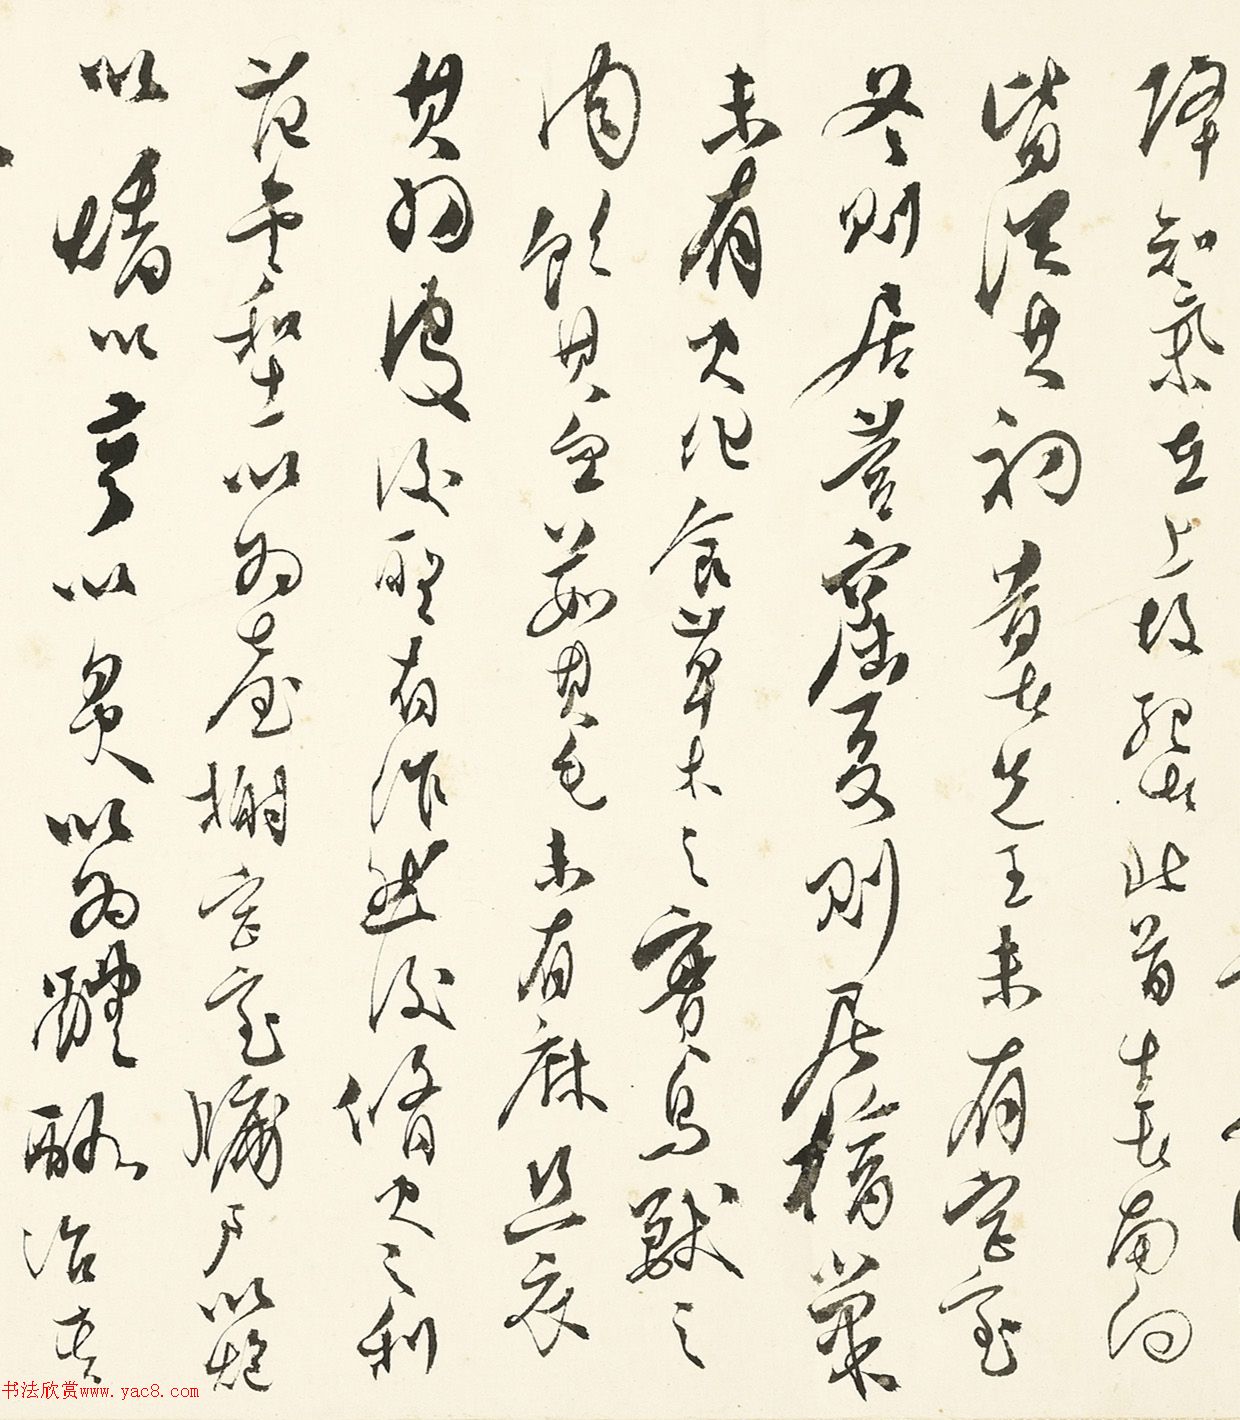 降知氣在上故死者北首生者南向
皆從其初昔者先王未有宮室
冬則居營窟夏則居橧巢
未有火化食草木之實鳥獸之
肉飲其血茹其毛未有麻絲衣
其羽皮後聖有作然後脩火之利
范金合土以為臺榭宮室牖戶以炮
以燔以亨以炙以為醴酪治其
书法欣赏www.yac8.com